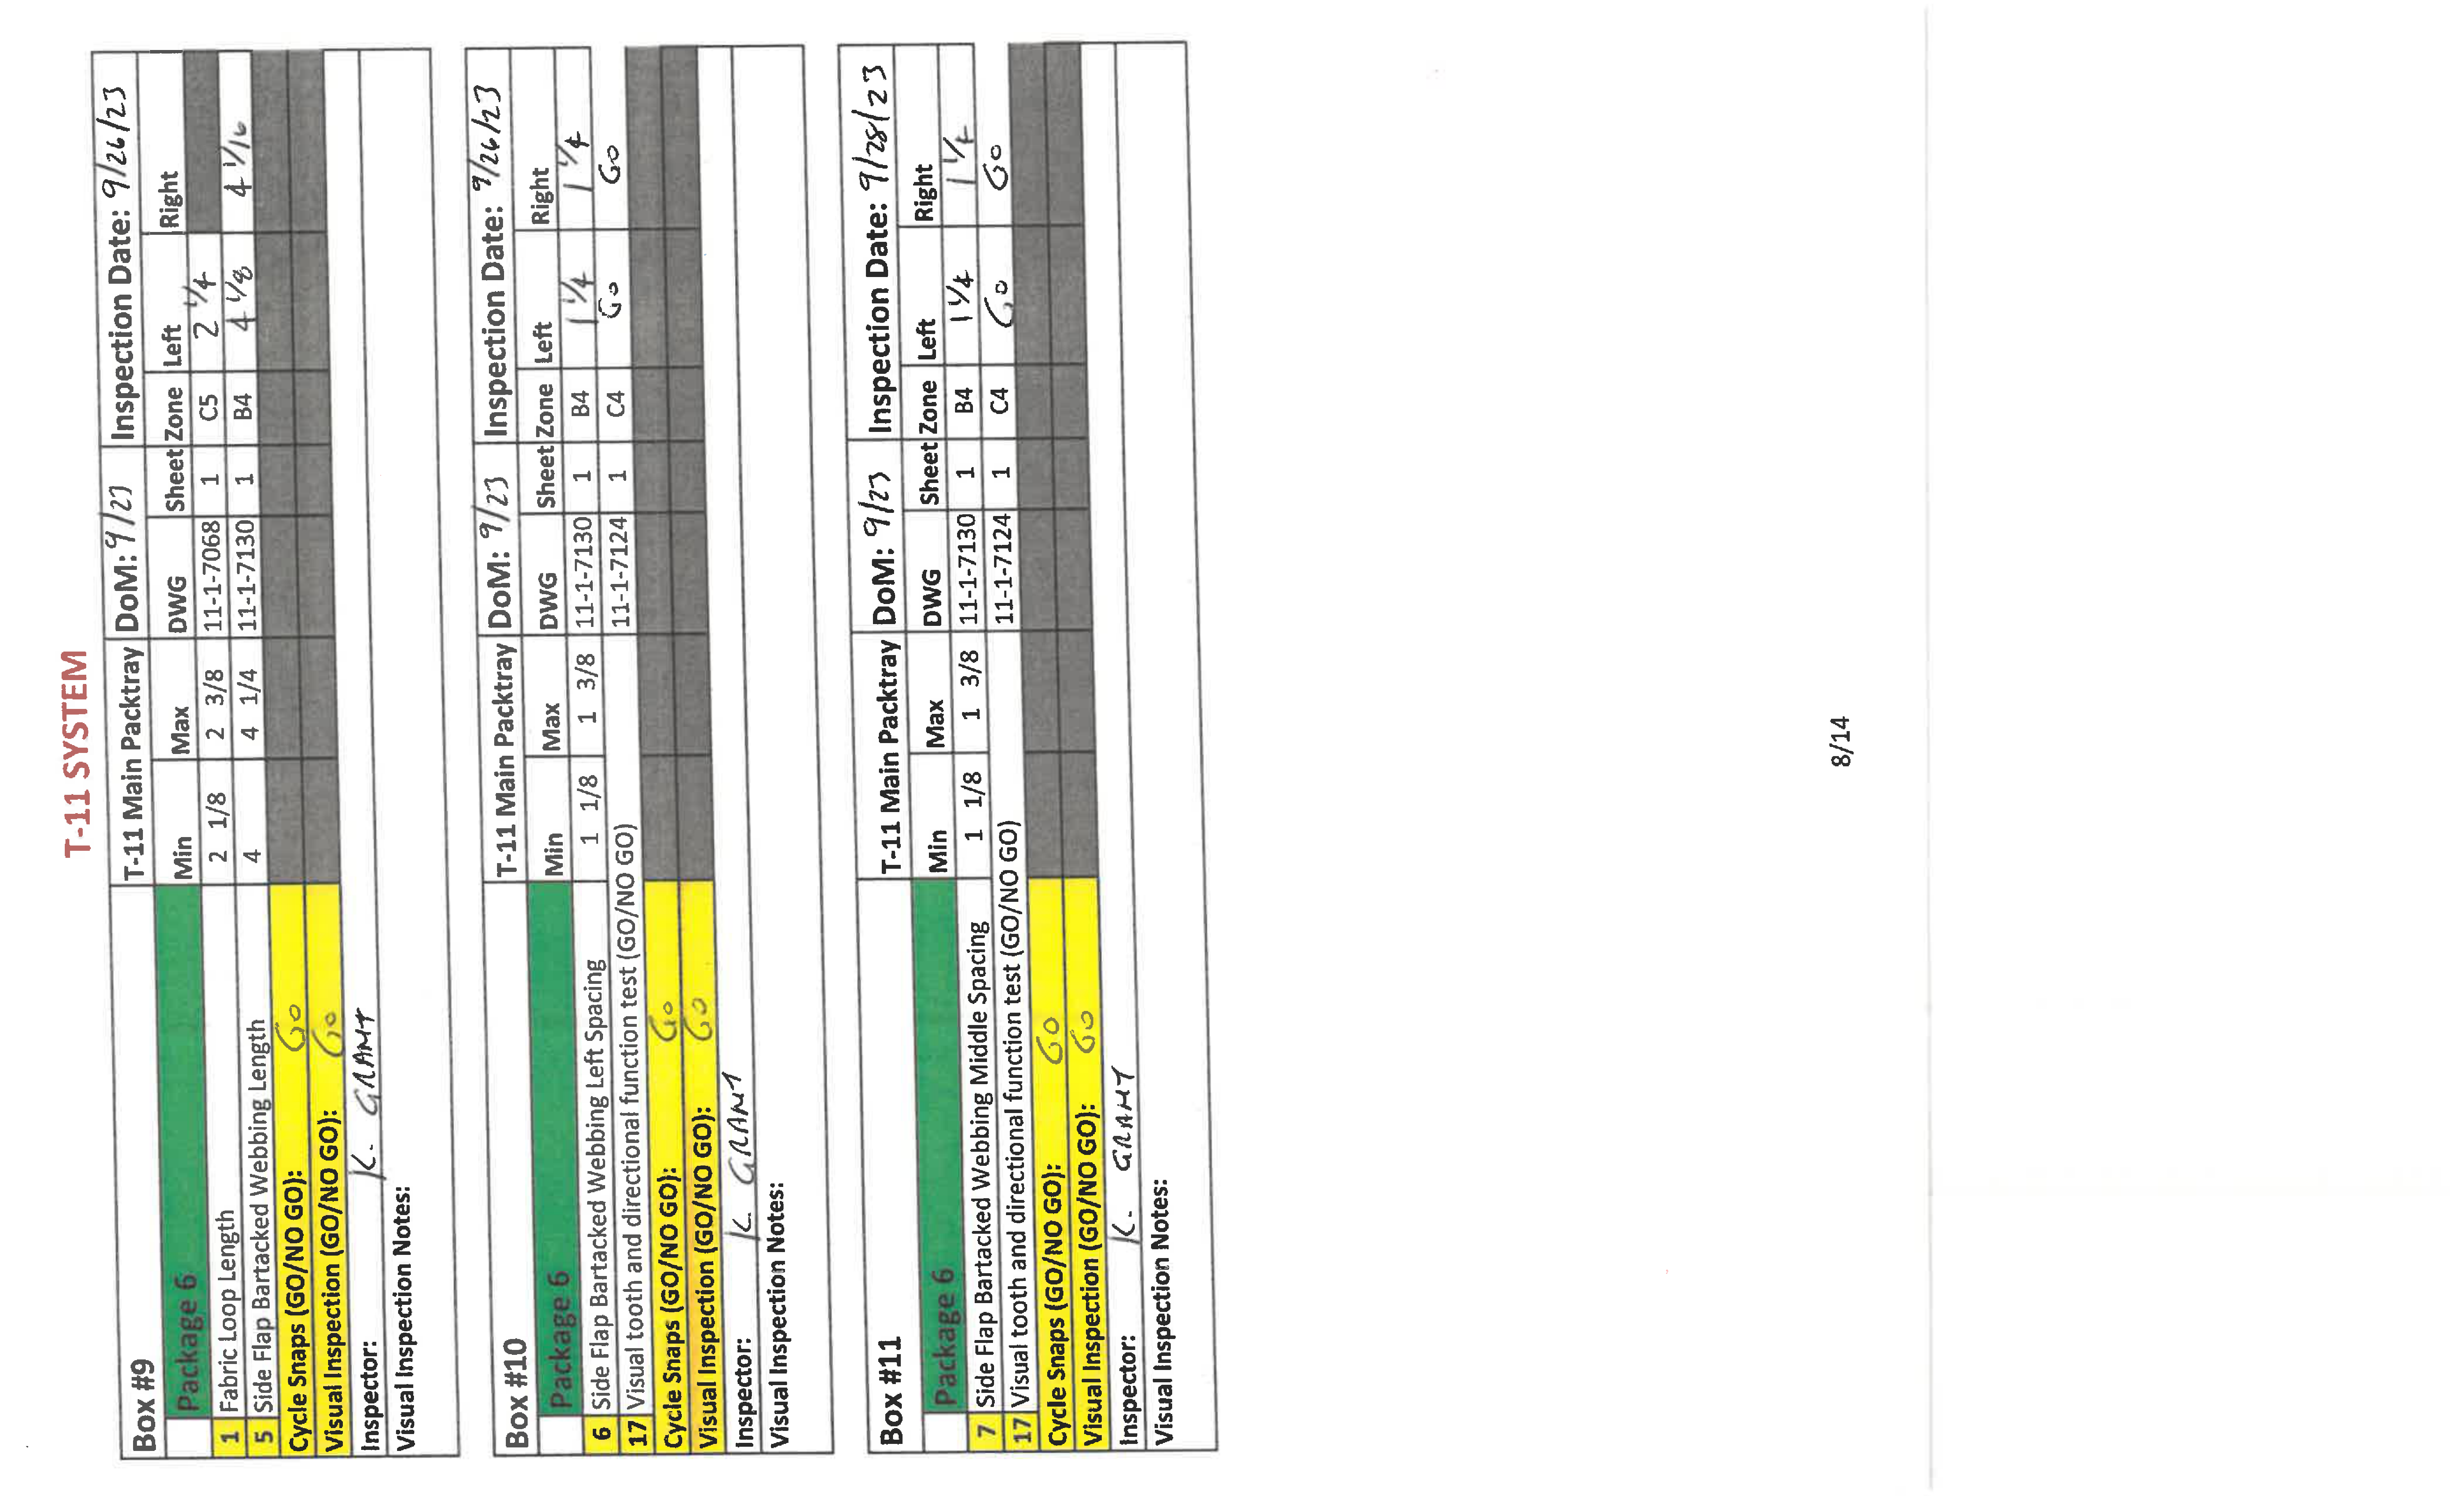 T-11 SYSTEM
Box #9 T-11 Main Packtray DoM: 9/23 Inspection Date: 9/26/23
Package 6 Min Max DWG Sheet Zone Left Right
1 Fabric Loop Length 2 1/8 2 3/8 11-1-7068 1 C5 2 1/4
5 Side Flap Bartacked Webbing Length 4 4 1/4 11-1-7130 1 B4 4 1/8 4 1/16
Cycle Snaps (GO/NO GO): GO
Visual Inspection (GO/NO GO): GO
Inspector: K. GRANT
Visual Inspection Notes:
Box #10 T-11 Main Packtray DoM: 9/23 Inspection Date: 9/26/23
Package 6 Min Max DWG Sheet Zone Left Right
6 Side Flap Bartacked Webbing Left Spacing 1 1/8 1 3/8 11-1-7130 1 B4 1 1/4 1 1/4
17 Visual tooth and directional function test (GO/NO GO) 11-1-7124 1 C4 GO GO
Cycle Snaps (GO/NO GO): GO
Visual Inspection (GO/NO GO): GO
Inspector: K. GRANT
Visual Inspection Notes:
Box #11 T-11 Main Packtray DoM: 9/23 Inspection Date: 9/28/23
Package 6 Min Max DWG Sheet Zone Left Right
7 Side Flap Bartacked Webbing Middle Spacing 1 1/8 1 3/8 11-1-7130 1 B4 1 1/4 1 1/4
17 Visual tooth and directional function test (GO/NO GO) 11-1-7124 1 C4 GO GO
Cycle Snaps (GO/NO GO): GO
Visual Inspection (GO/NO GO): GO
Inspector: K. GRANT
Visual Inspection Notes:
8/14